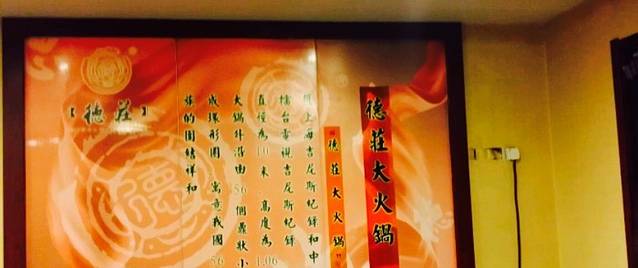 德莊大火鍋
"德莊大火鍋"
上海吉尼斯紀錄和中
擂台電視吉尼斯紀錄
直徑為10米 高度為1.06
大鍋外沿由56個鼎狀小
成環形圍 寓意我國56
族的團結祥和
【德莊】
德